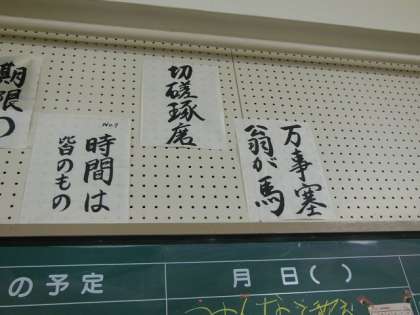 期限の
No.7
時間は
皆のもの
切磋琢磨
万事塞
翁が馬
の予定
月 日( )